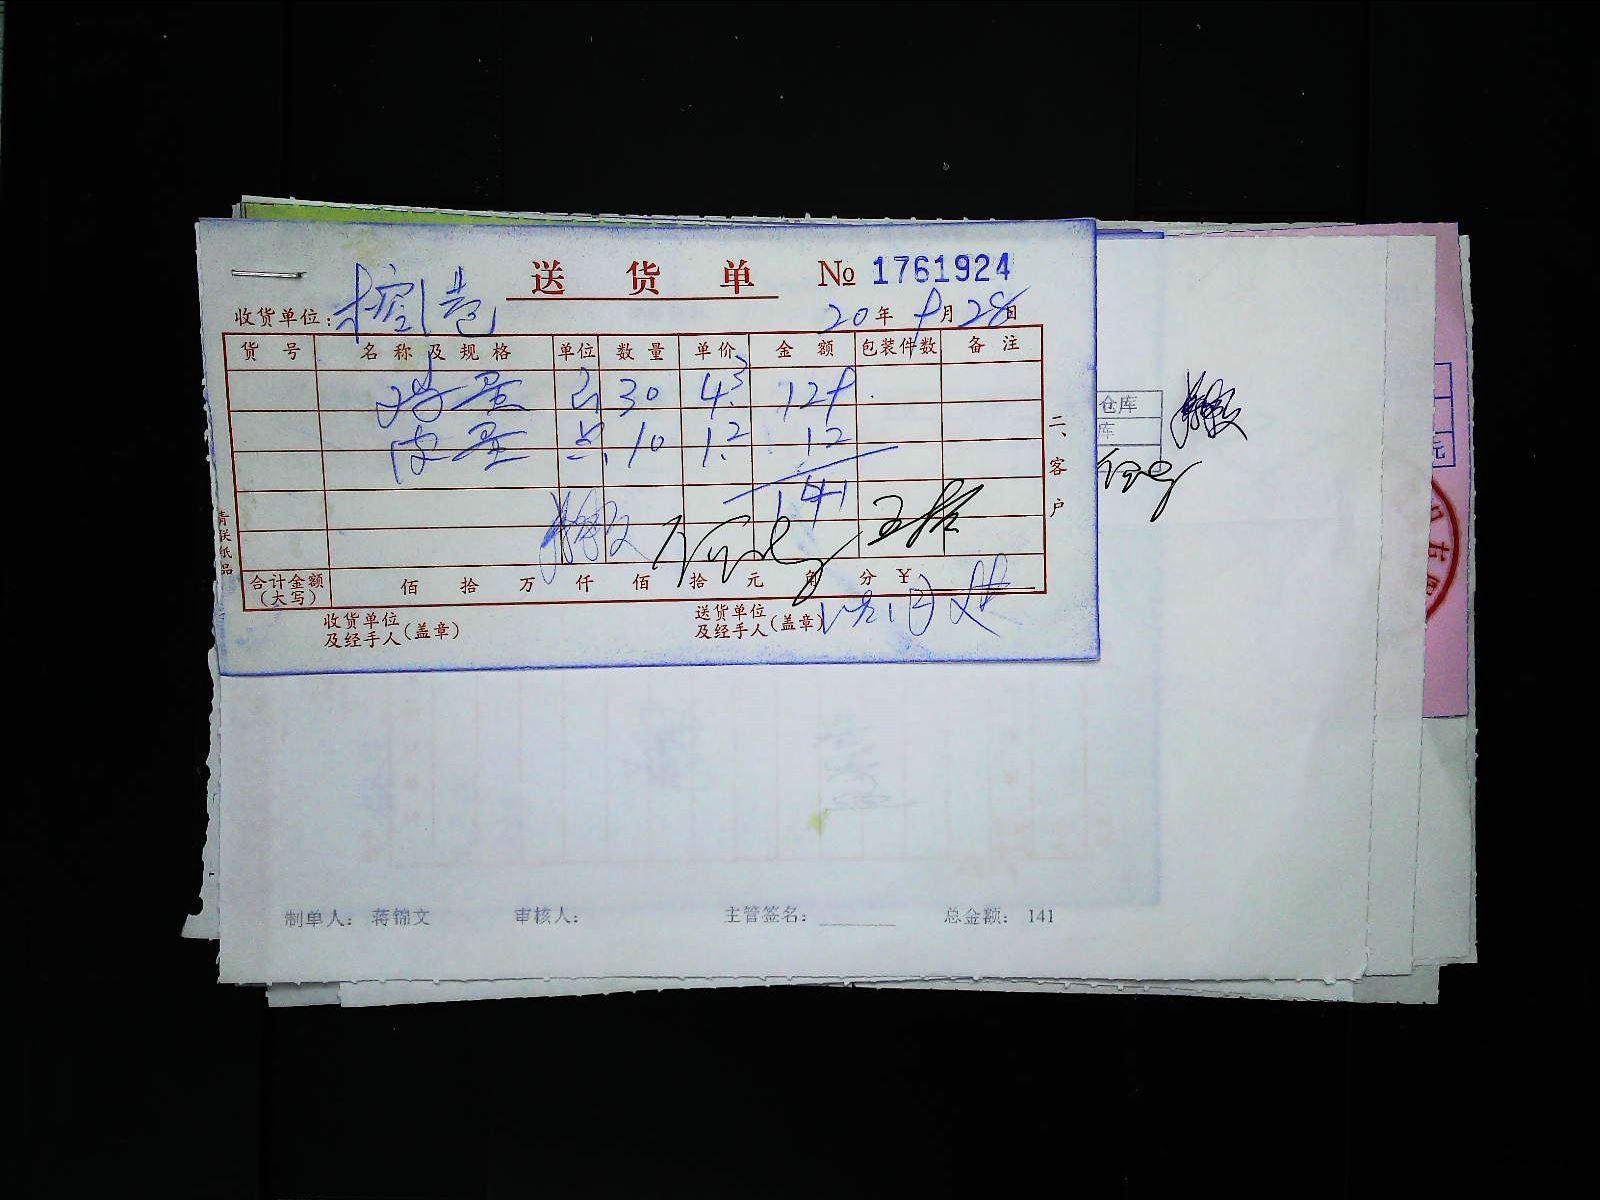 送货单 № 1761924
收货单位:
20年9月28日
货号 名称及规格 单位 数量 单价 金额 包装件数 备注
鸡蛋 30 4.3 129
皮蛋 10 1.2 12
141
合计金额(大写) 佰 拾 万 仟 佰 拾 元 角 分 ¥
收货单位及经手人(盖章)
送货单位及经手人(盖章)
二、客户
青联纸品
仓库
库
元
制单人: 蒋锦文 审核人: 主管签名: 总金额: 141